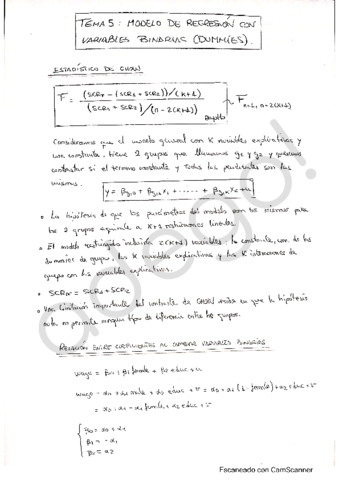 TEMA 5: MODELO DE REGRESIÓN CON
VARIABLES BINARIAS (DUMMIES).
ESTADÍSTICO DE CHOW
F = (SCRr - (SCR1 + SCR2)) / (K+1)
(SCR1 + SCR2) / (n - 2(K+1))
F K+1, n-2(K+1)
Consideramos que el modelo general con K variables explicativas y
una constante, tiene 2 grupos que llamamos g1 y g2 y queremos
contrastar si el término constante y todas las pendientes son las
mismas.
y = βg,0 + βg,1 x1 + ...... + βg,k xk + u
La hipótesis de que los parámetros del modelo son los mismos para
los 2 grupos equivale a K+1 restricciones lineales.
El modelo no restringido incluiría 2(K+1) variables: la constante, una de las
dummies de grupo, las K variables explicativas y las K interacciones de
grupo con las variables explicativas.
SCRur = SCR1 + SCR2
Una limitación importante del contraste de CHOW reside en que la hipótesis
nula no permite ningún tipo de diferencia entre los grupos.
RELACIÓN ENTRE COEFICIENTES AL CAMBIAR VARIABLES BINARIAS
wage = β0 + β1 female + β2 educ + u
wage = α0 + α1 male + α2 educ + v = α0 + α1 (1 - female) + α2 educ + v
= α0 + α1 - α1 female + α2 educ + v
β0 = α0 + α1
β1 = -α1
β2 = α2
Escaneado con CamScanner